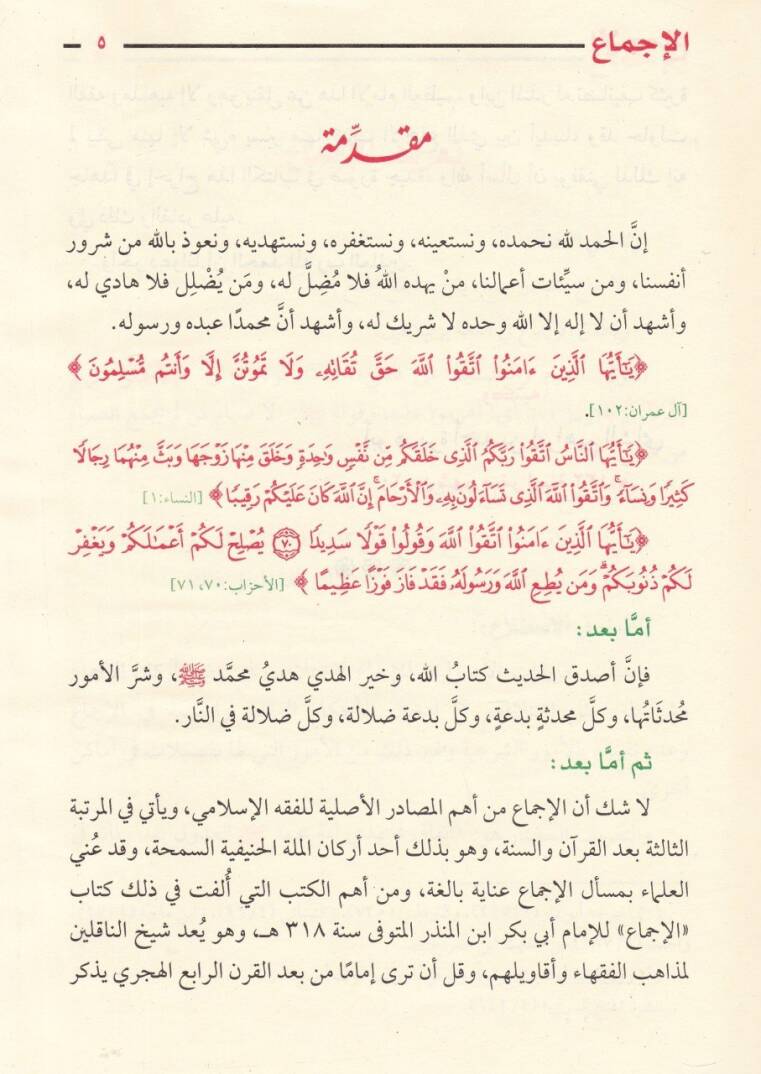 الإجماع ٥
مقدِّمة
إنَّ الحمد لله نحمده، ونستعينه، ونستغفره، ونستهديه، ونعوذ بالله من شرور
أنفسنا، ومن سيِّئات أعمالنا، منْ يهده اللهُ فلا مُضِلَّ له، ومَن يُضْلِل فلا هادي له،
وأشهد أن لا إله إلا الله وحده لا شريك له، وأشهد أنَّ محمدًا عبده ورسوله.
﴿يَٰٓأَيُّهَا ٱلَّذِينَ ءَامَنُوا۟ ٱتَّقُوا۟ ٱللَّهَ حَقَّ تُقَاتِهِۦ وَلَا تَمُوتُنَّ إِلَّا وَأَنتُم مُّسْلِمُونَ﴾
[آل عمران:١٠٢].
﴿يَٰٓأَيُّهَا ٱلنَّاسُ ٱتَّقُوا۟ رَبَّكُمُ ٱلَّذِى خَلَقَكُم مِّن نَّفْسٍ وَٰحِدَةٍ وَخَلَقَ مِنْهَا زَوْجَهَا وَبَثَّ مِنْهُمَا رِجَالًا
كَثِيرًا وَنِسَآءً ۚ وَٱتَّقُوا۟ ٱللَّهَ ٱلَّذِى تَسَآءَلُونَ بِهِۦ وَٱلْأَرْحَامَ ۚ إِنَّ ٱللَّهَ كَانَ عَلَيْكُمْ رَقِيبًا﴾ [النساء:١]
﴿يَٰٓأَيُّهَا ٱلَّذِينَ ءَامَنُوا۟ ٱتَّقُوا۟ ٱللَّهَ وَقُولُوا۟ قَوْلًا سَدِيدًا ٧٠ يُصْلِحْ لَكُمْ أَعْمَٰلَكُمْ وَيَغْفِرْ
لَكُمْ ذُنُوبَكُمْ ۗ وَمَن يُطِعِ ٱللَّهَ وَرَسُولَهُۥ فَقَدْ فَازَ فَوْزًا عَظِيمًا﴾ [الأحزاب:٧٠، ٧١]
أمَّا بعد:
فإنَّ أصدق الحديث كتابُ الله، وخير الهدي هديُ محمَّد ﷺ، وشرَّ الأمور
مُحدثَاتُها، وكلَّ محدثةٍ بدعةٍ، وكلَّ بدعة ضلالة، وكلَّ ضلالة في النَّار.
ثم أمَّا بعد:
لا شك أن الإجماع من أهم المصادر الأصلية للفقه الإسلامي، ويأتي في المرتبة
الثالثة بعد القرآن والسنة، وهو بذلك أحد أركان الملة الحنيفية السمحة، وقد عُني
العلماء بمسأل الإجماع عناية بالغة، ومن أهم الكتب التي أُلفت في ذلك كتاب
«الإجماع» للإمام أبي بكر ابن المنذر المتوفى سنة ٣١٨ هـ، وهو يُعد شيخ الناقلين
لمذاهب الفقهاء وأقاويلهم، وقل أن ترى إمامًا من بعد القرن الرابع الهجري يذكر